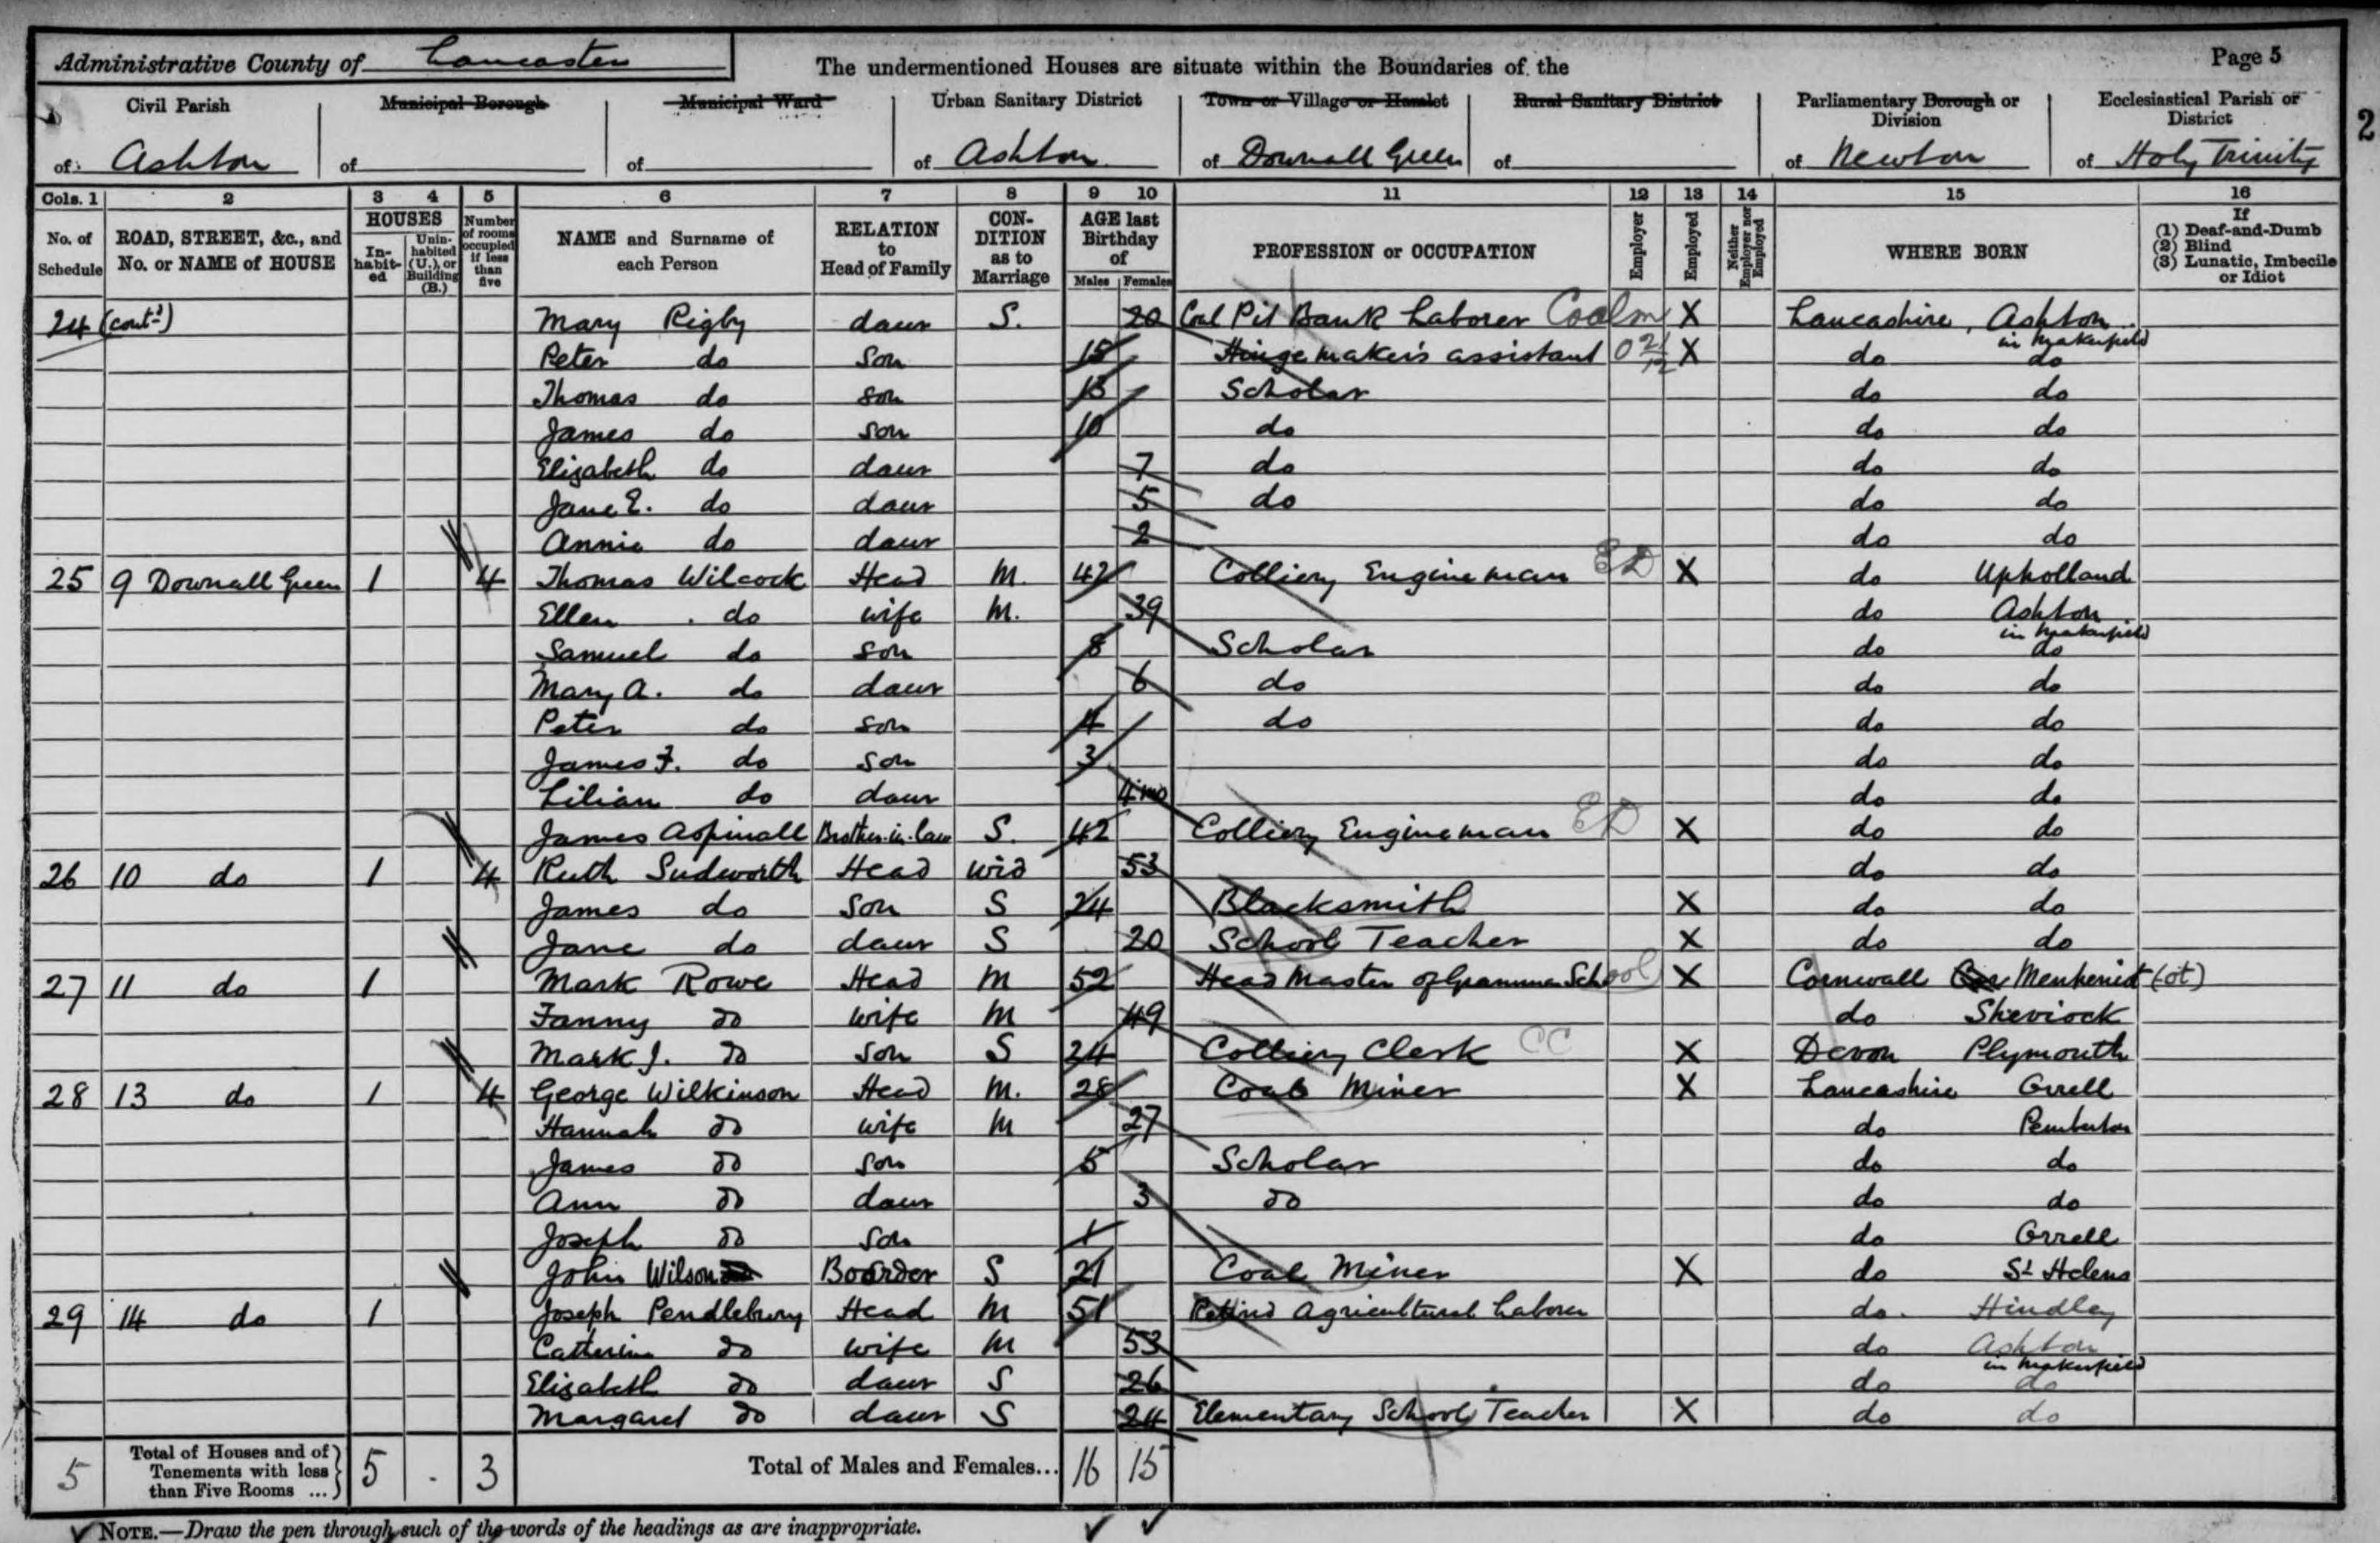 Administrative County of Lancaster The undermentioned Houses are situate within the Boundaries of the Page 5
Civil Parish Municipal Borough Municipal Ward Urban Sanitary District Town or Village or Hamlet Rural Sanitary District Parliamentary Borough or Division Ecclesiastical Parish or District
of Ashton of of of Ashton of Downall Green of of Newton of Holy Trinity
2
Cols. 1 2 3 4 5 6 7 8 9 10 11 12 13 14 15 16
No. of Schedule ROAD, STREET, &c., and No. or NAME of HOUSE HOUSES In-habit-ed Unin-habited (U.), or Building (B.) Number of rooms occupied if less than five NAME and Surname of each Person RELATION to Head of Family CON-DITION as to Marriage AGE last Birthday of Males Females PROFESSION or OCCUPATION Employer Employed Neither Employer nor Employed WHERE BORN If (1) Deaf-and-Dumb (2) Blind (3) Lunatic, Imbecile or Idiot
24 (contd) Mary Rigby daur S. 20 Coal Pit Bank Laborer Coalm X Lancashire, Ashton in Makerfield
Peter do son 15 Hinge maker's assistant X do do
Thomas do son 13 Scholar do do
James do son 10 do do do
Elizabeth do daur 7 do do do
Jane E. do daur 5 do do do
Annie do daur 2 do do
25 9 Downall Green 1 4 Thomas Wilcock Head M. 42 Colliery Engine man ED X do Upholland
Ellen do wife M. 39 do Ashton in Makerfield
Samuel do son 8 Scholar do do
Mary A. do daur 6 do do do
Peter do son 4 do do do
James F. do son 3 do do
Lilian do daur 4 mo do do
James Aspinall Brother-in-law S. 42 Colliery Engineman ED X do do
26 10 do 1 4 Ruth Sudworth Head wid 53 do do
James do son S 24 Blacksmith X do do
Jane do daur S 20 School Teacher X do do
27 11 do 1 Mark Rowe Head M 52 Head Master of Grammar School X Cornwall Menheniot (ot)
Fanny do wife M 49 do Sheviock
Mark J. do son S 24 Colliery Clerk CC X Devon Plymouth
28 13 do 1 4 George Wilkinson Head M. 28 Coal Miner X Lancashire Orrell
Hannah do wife M 27 do Pemberton
James do son 5 Scholar do do
Ann do daur 3 do do do
Joseph do son 1 do Orrell
John Wilson Boarder S 21 Coal Miner X do St Helens
29 14 do 1 Joseph Pendlebury Head M 51 Retired Agricultural Laborer do. Hindley
Catherine do wife M 53 do Ashton in Makerfield
Elizabeth do daur S 26 do do
Margaret do daur S 24 Elementary School Teacher X do do
5 Total of Houses and of Tenements with less than Five Rooms ... 5 - 3 Total of Males and Females... 16 15
NOTE.—Draw the pen through such of the words of the headings as are inappropriate.